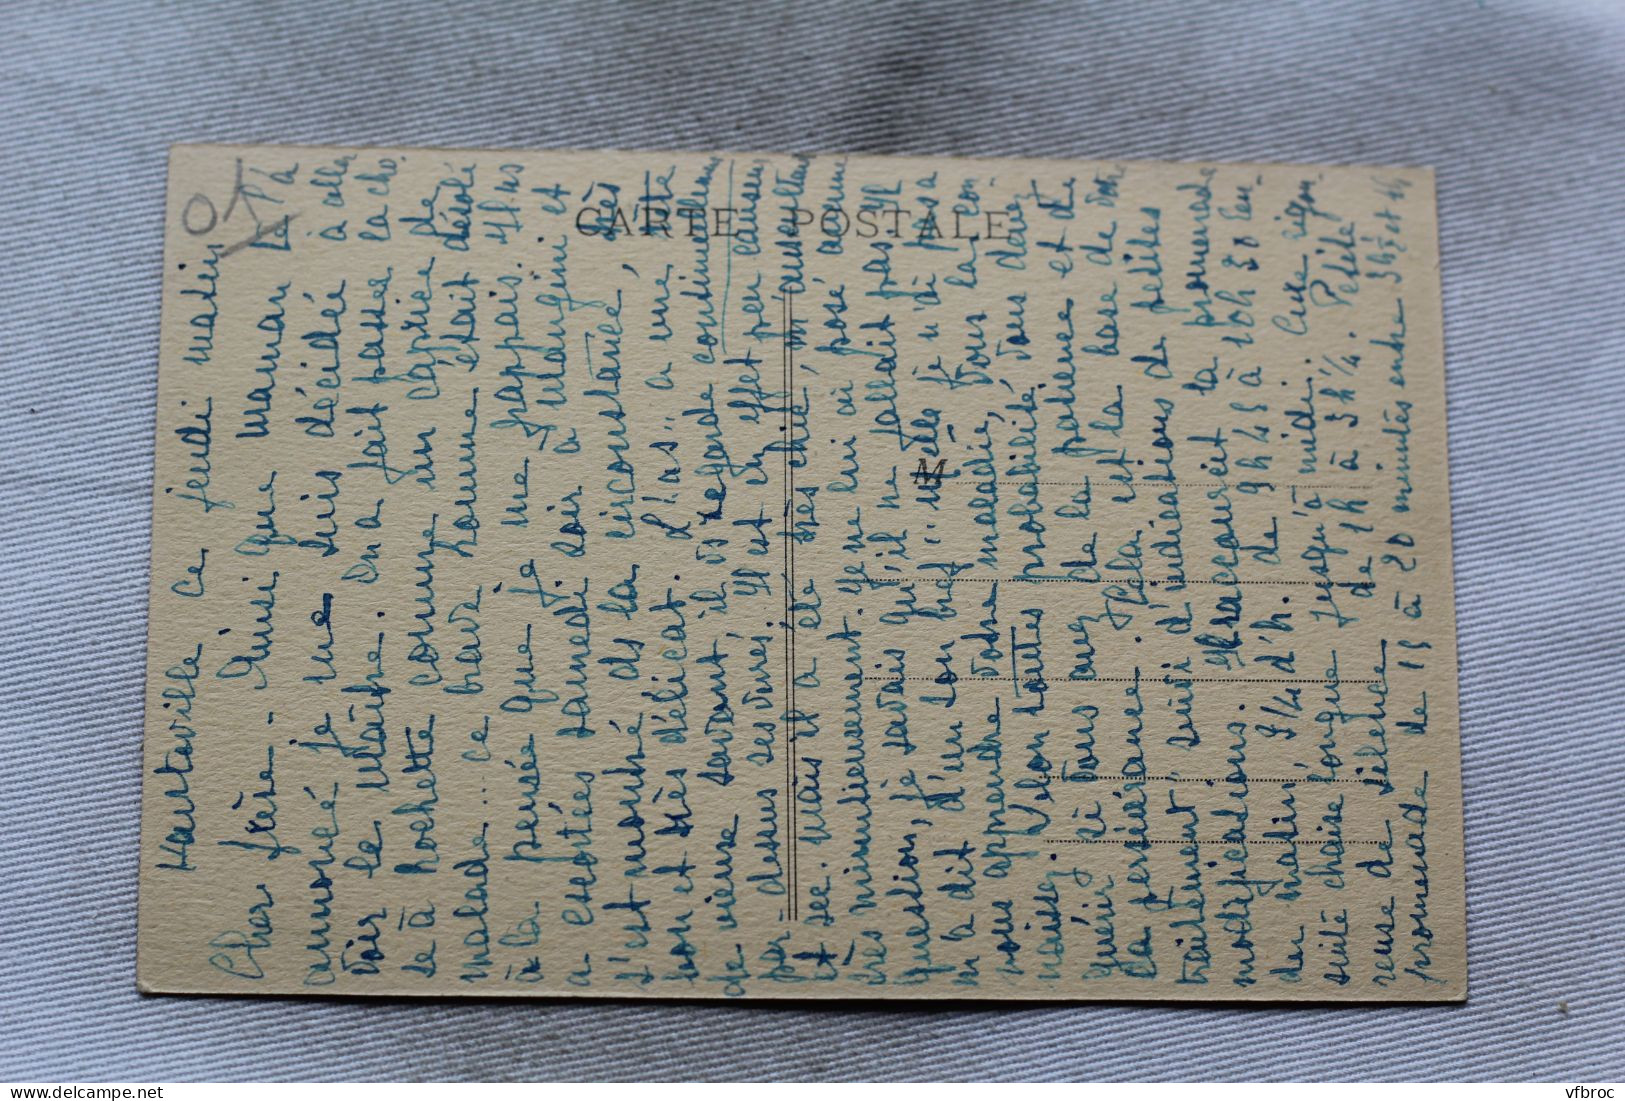 01
CARTE POSTALE
M
Hauteville ce jeudi matin
Cher frère. Ainsi que maman te l'a
annoncé je me suis décidée à aller
voir le Maître. On a fait passer la cho-
se à Rochette comme un caprice de
malade... ce brave homme était désolé
à la pensée que je me frappais. Il ns
a escortées samedi soir à Mangini et
s'est montré ds la circonstance, très
bon et très délicat. L'"as" a une tête
de vieux savant il vs regarde continuellement
par-dessus ses verres. Il est en effet peu causeur
et sec. Mais il a été très chic, m'auscultant
très minutieusement. Je ne lui ai posé aucune
question, je savais qu'il ne fallait pas. Il
m'a dit d'un ton bref "Mlle je n'ai pas à
vous apprendre votre maladie, vous la con-
naissez. Selon toutes probabilité, vous devez
guérir si vous avez de la patience et de
la persévérance. Cela est la base de votre
traitement", suivi d'indications de petites
modifications. Il raccourcit la promenade
du matin, 3/4 d'h. de 9h45 à 10h30 en-
suite chaise longue jusqu'à midi. Cure rigou-
reuse de silence de 1h à 3h 1/4. Petite
promenade de 15 à 20 minutes entre 3h 1/2 et 4h
vfbroc